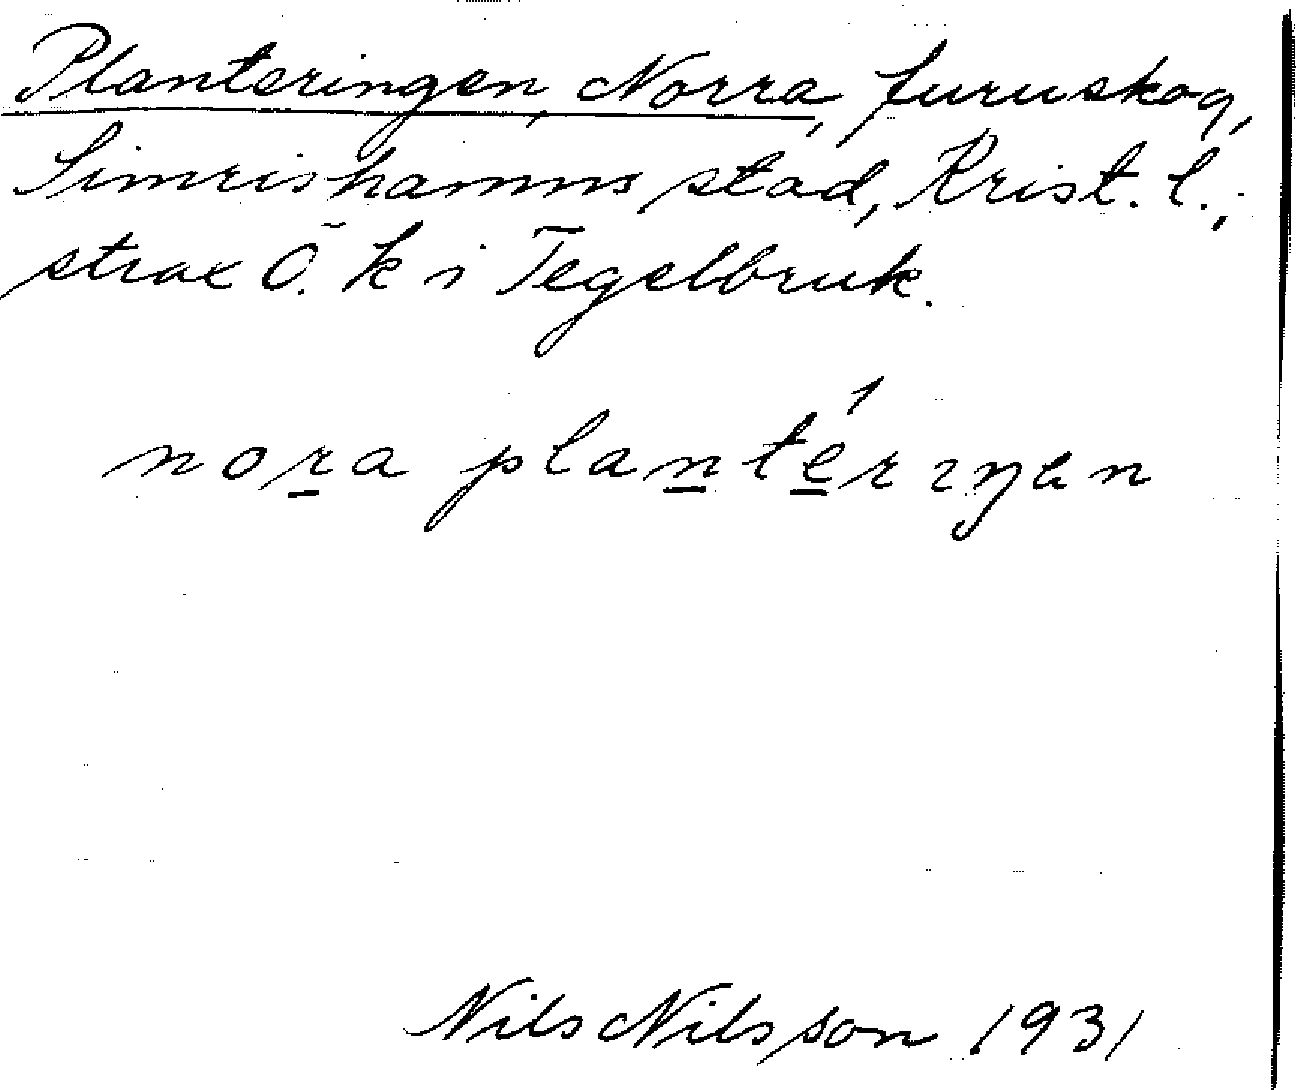 Planteringen, Norra, furuskog,
Simrishamns stad, Krist. l.,
strax Ö. k i Tegelbruk.
nora plantérıŋen
Nils Nilsson 1931